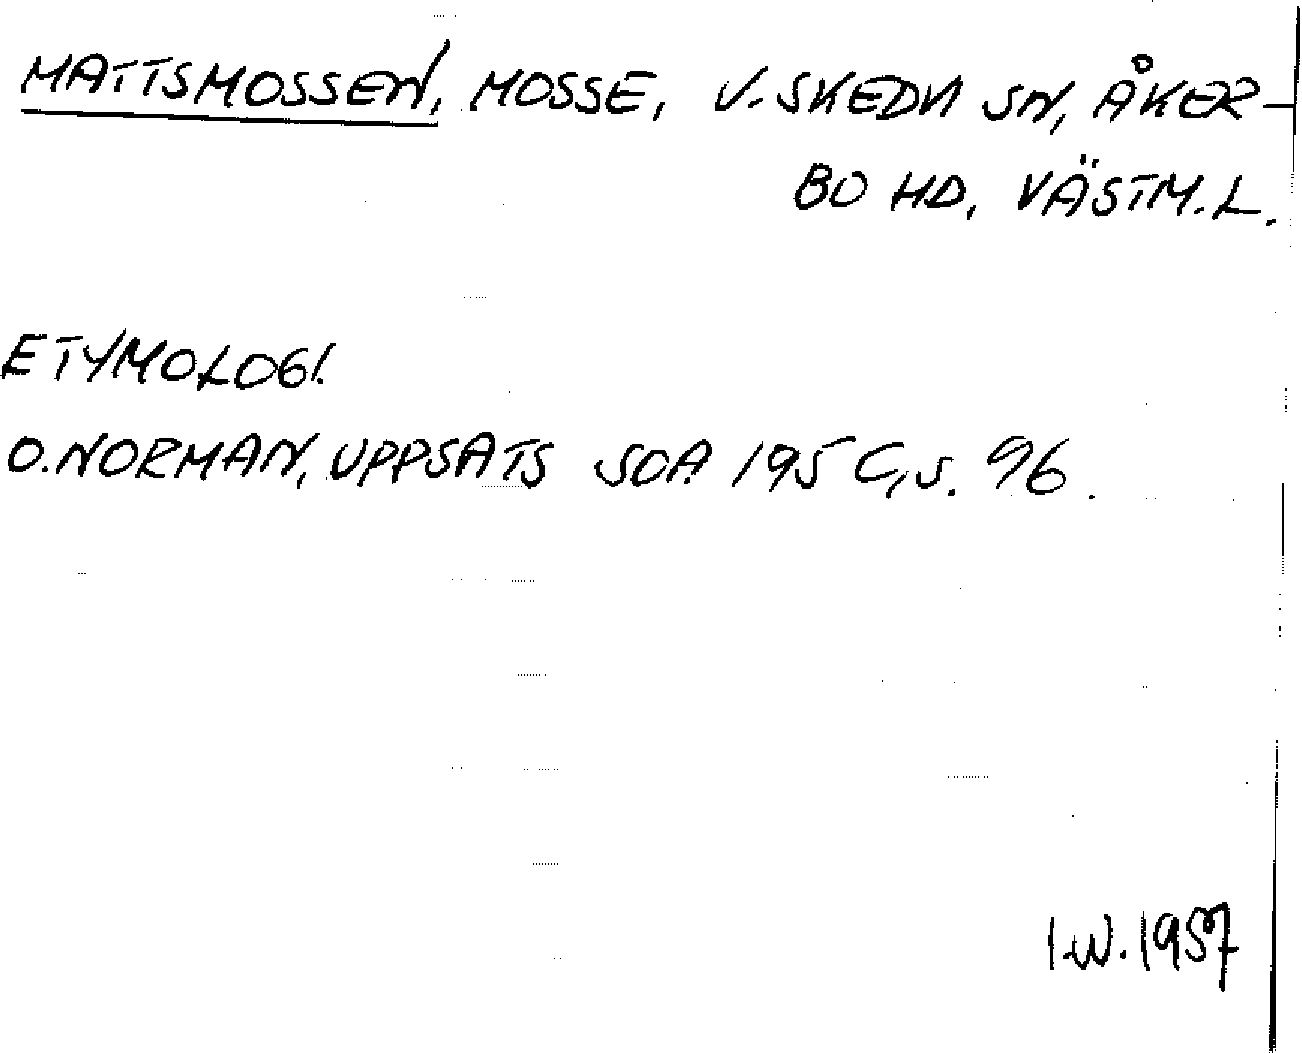 MATTSMOSSEN, MOSSE, V. SKEDVI SN, ÅKER-
BO HD, VÄSTM. L.
ETYMOLOGI.
O. NORMAN, UPPSATS SOA 195 C, S. 96.
I.W. 1957